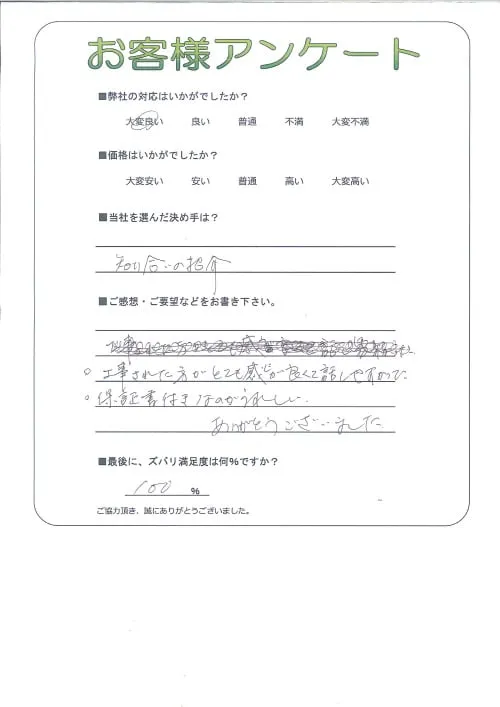 お客様アンケート
■弊社の対応はいかがでしたか?
大変良い 良い 普通 不満 大変不満
■価格はいかがでしたか?
大変安い 安い 普通 高い 大変高い
■当社を選んだ決め手は?
知り合いの紹介
■ご感想・ご要望などをお書き下さい。
○工事された方がとても感じが良くて話しやすかった
○保証書付きなのがうれしい。
ありがとうございました
■最後に、ズバリ満足度は何%ですか?
100 %
ご協力頂き、誠にありがとうございました。